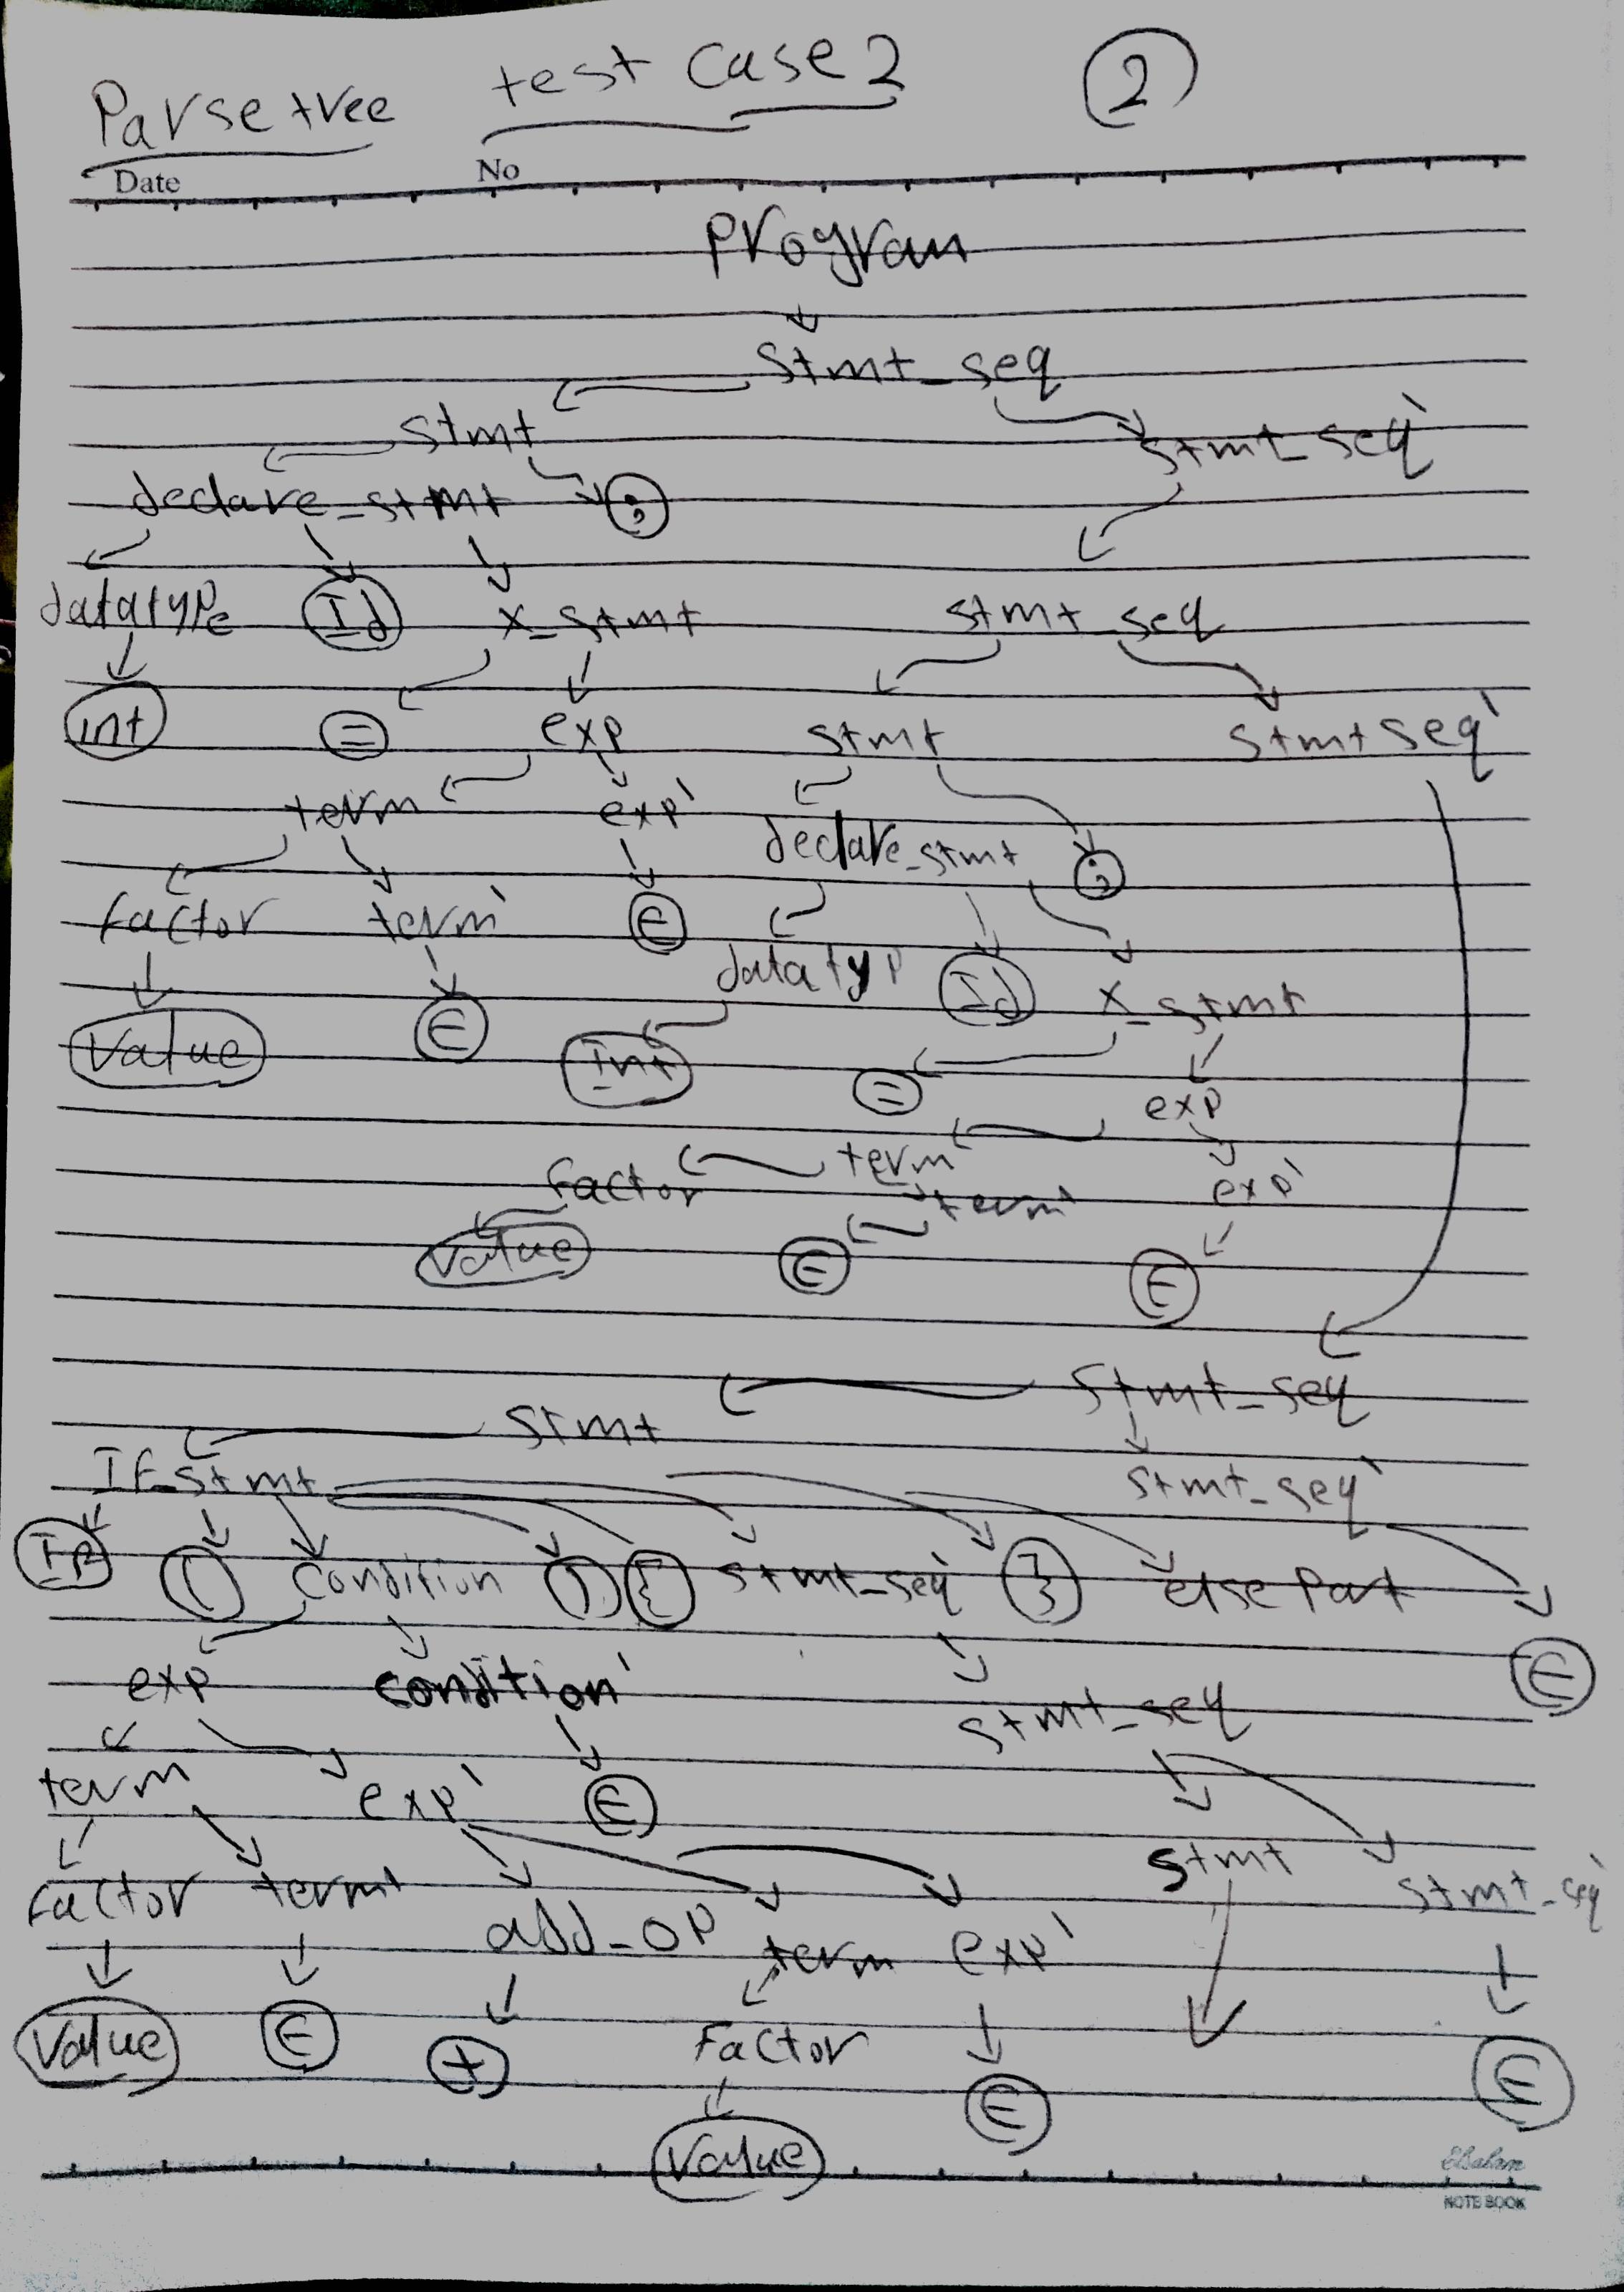 Parse tree test case 2 2
Date No
Program
stmt_seq
stmt stmt_seq`
declare_stmt ;
datatype Id x_stmt stmt seq
int = exp stmt stmt seq`
term exp` declare_stmt ;
factor term` ∈
datatyp Id x_stmt
Value ∈ Int = exp
factor term term` exp`
Value ∈ ∈
stmt_seq
stmt
If_stmt stmt_seq`
If ( condition ) { stmt_seq` } else Part
exp condition` stmt_seq ∈
term exp` ∈
factor term` add_op term exp` stmt stmt_seq`
Value ∈ + factor ∈ ∈
Value
Elsalam
NOTE BOOK